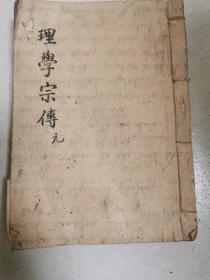 理學宗傳
元